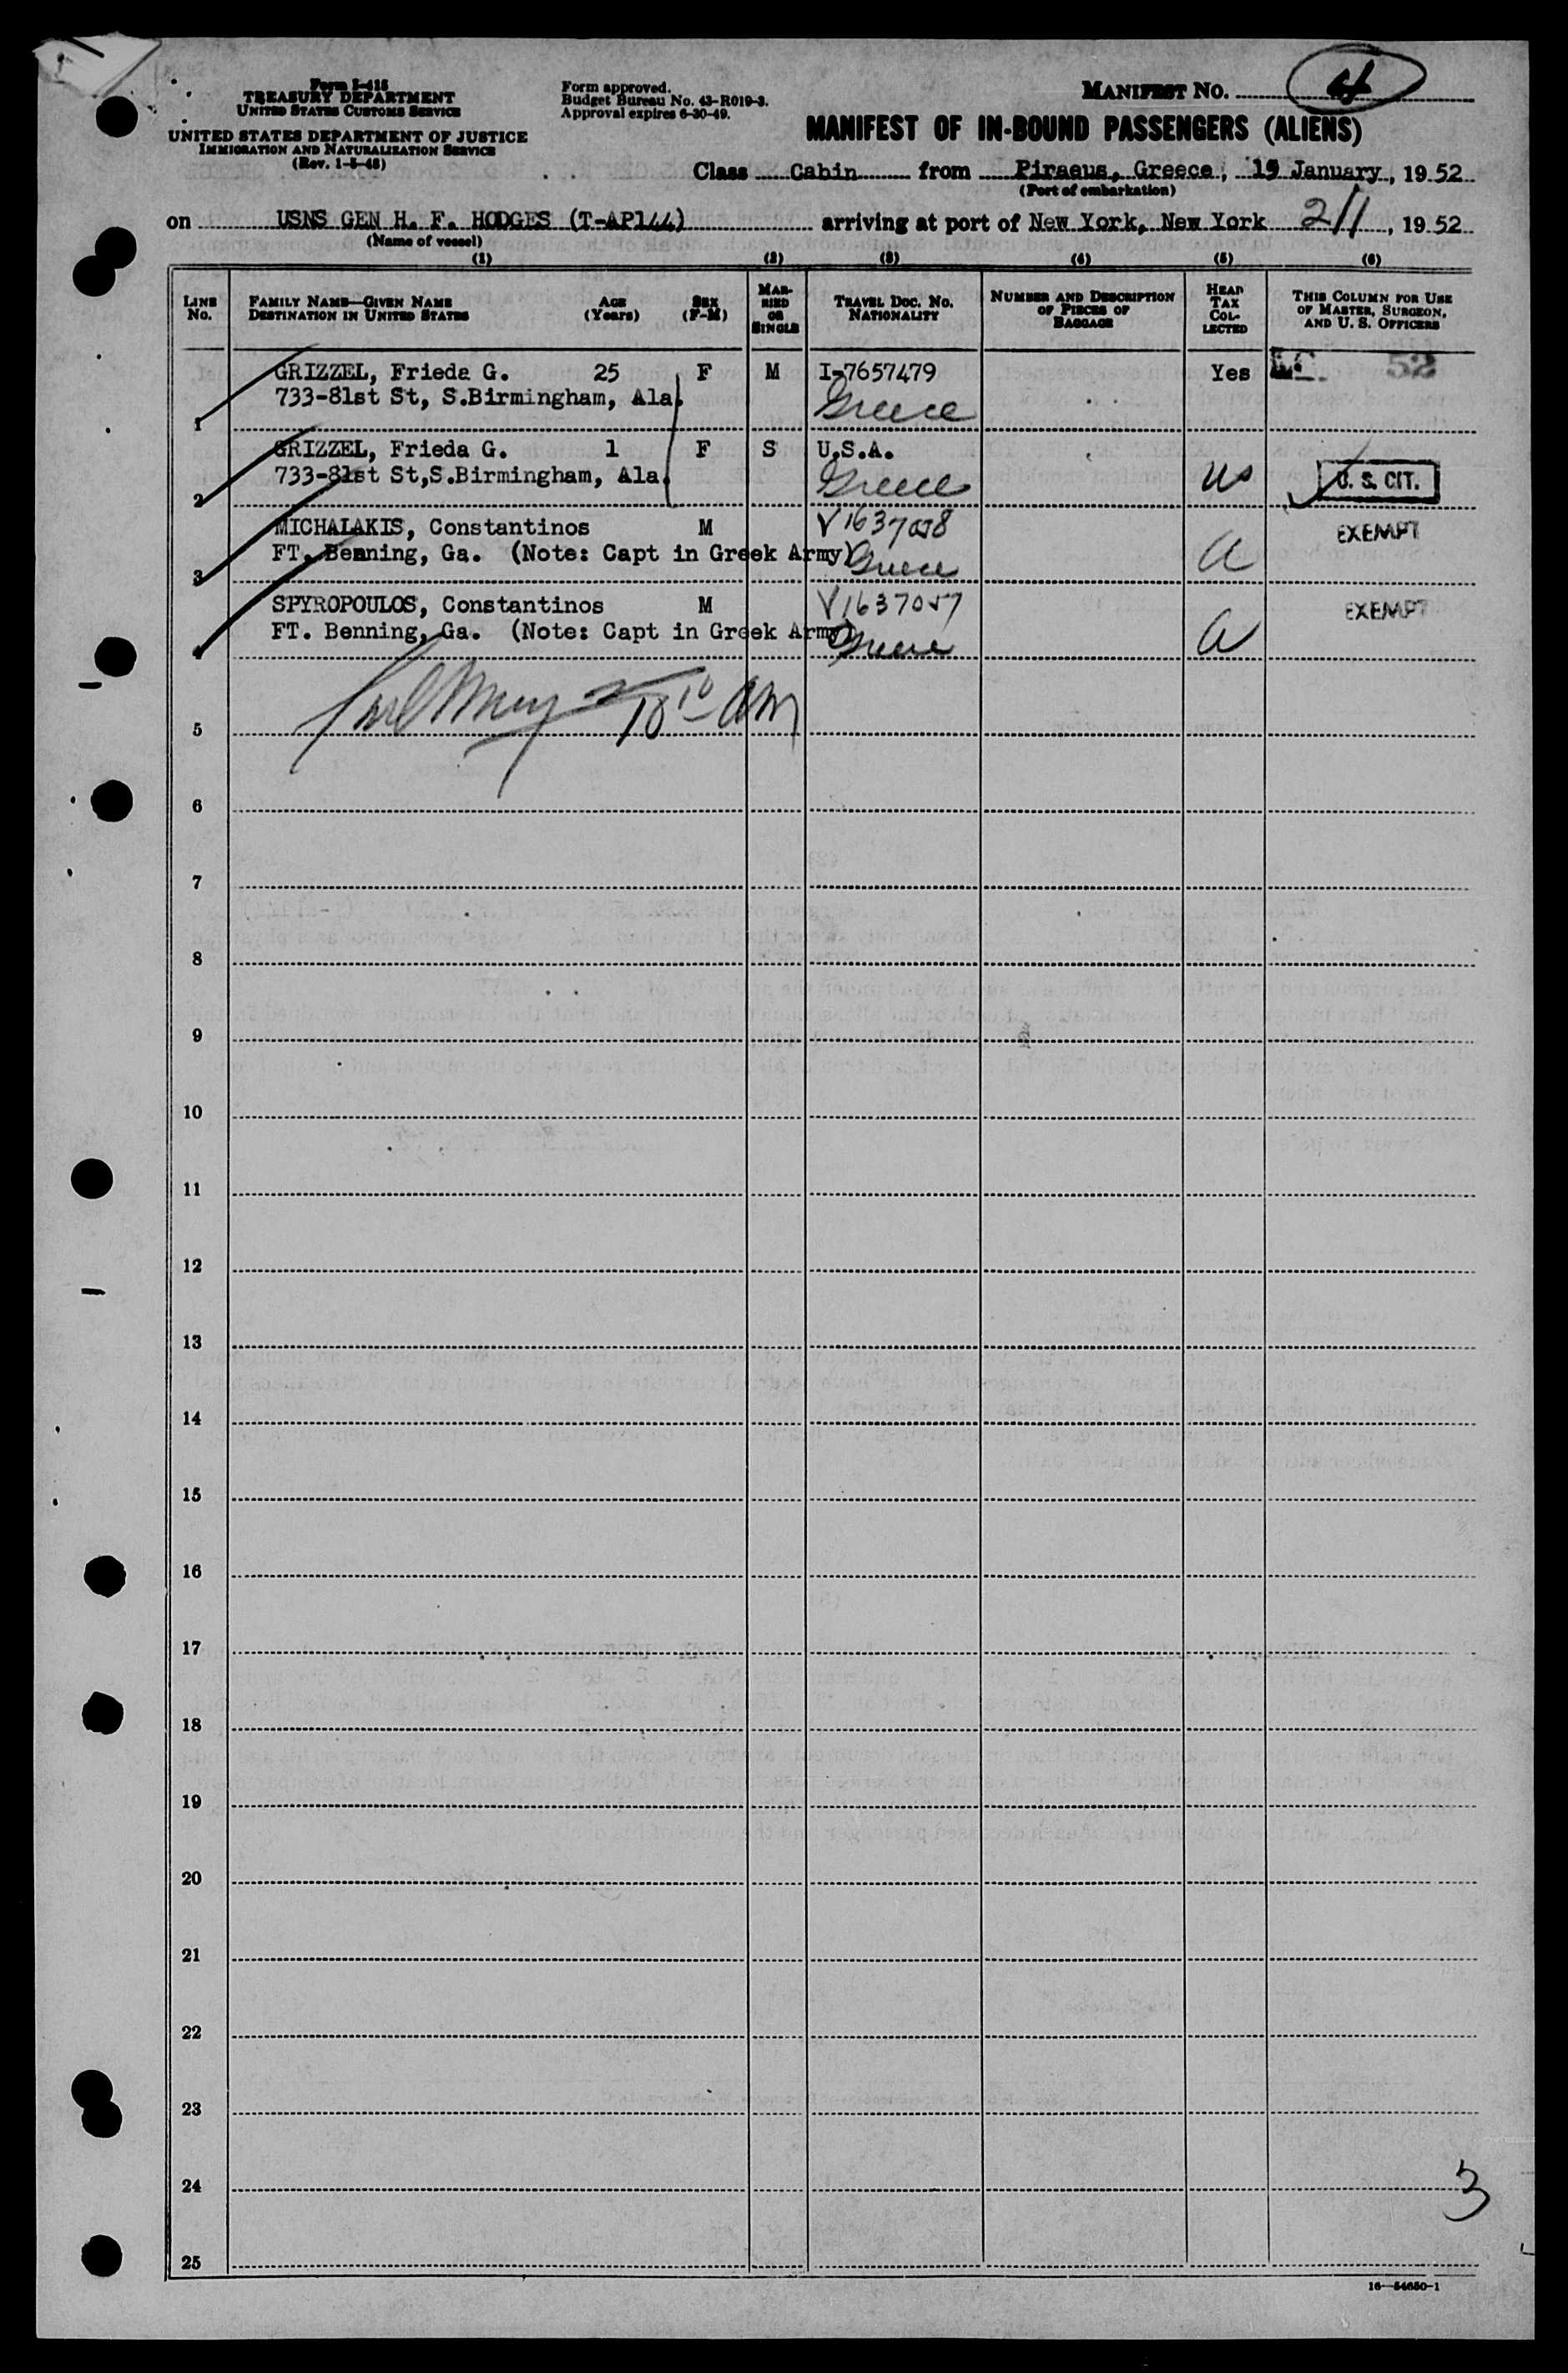 Form I-415
TREASURY DEPARTMENT
UNITED STATES CUSTOMS SERVICE
UNITED STATES DEPARTMENT OF JUSTICE
IMMIGRATION AND NATURALIZATION SERVICE
(Rev. 1-5-48)
Form approved.
Budget Bureau No. 43-R019-3.
Approval expires 6-30-49.
MANIFEST NO. 4
MANIFEST OF IN-BOUND PASSENGERS (ALIENS)
Class Cabin from Piraeus, Greece, 19 January, 1952
(Port of embarkation)
on USNS GEN H. F. HODGES (T-AP144) arriving at port of New York, New York 2/1, 1952
(Name of vessel)
(1) (2) (3) (4) (5) (6)
LINE No. FAMILY NAME—GIVEN NAME DESTINATION IN UNITED STATES AGE (Years) SEX (F-M) MARRIED OR SINGLE TRAVEL DOC. NO. NATIONALITY NUMBER AND DESCRIPTION OF PIECES OF BAGGAGE HEAD TAX COLLECTED THIS COLUMN FOR USE OF MASTER, SURGEON, AND U. S. OFFICERS
GRIZZEL, Frieda G. 25 F M I-7657479 Yes 52
733-81st St, S.Birmingham, Ala. Greece
1
GRIZZEL, Frieda G. 1 F S U.S.A.
733-81st St,S.Birmingham, Ala. Greece us U. S. CIT.
2
MICHALAKIS, Constantinos M V1637058 EXEMPT
FT. Benning, Ga. (Note: Capt in Greek Army) Greece a
3
SPYROPOULOS, Constantinos M V1637057 EXEMPT
FT. Benning, Ga. (Note: Capt in Greek Army) Greece a
4
10 10 AM
5
6
7
8
9
10
11
12
13
14
15
16
17
18
19
20
21
22
23
24
3
25
16—54650-1